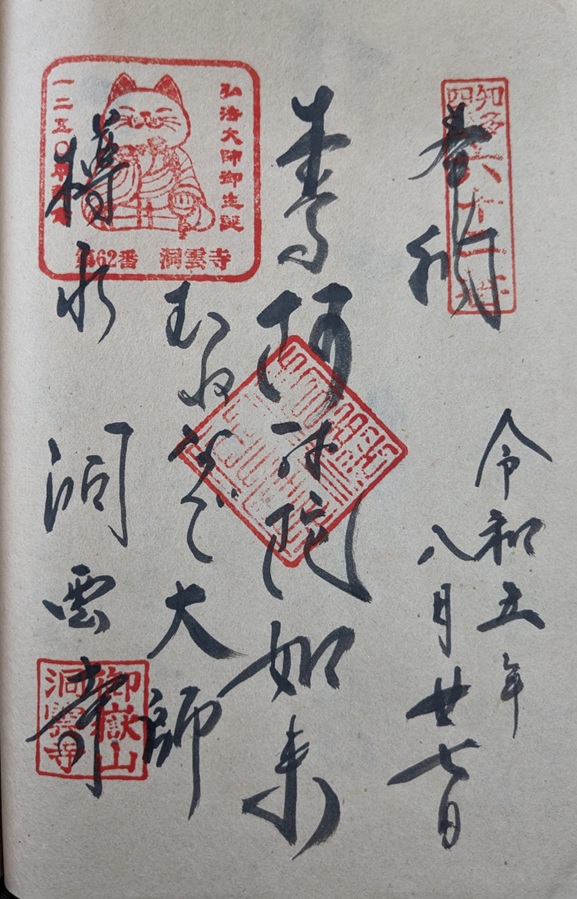 奉納
知多
四国
六十二番
令和五年
八月廿七日
本尊 阿弥陀如来
むねなで大師
弘法大師御生誕
一二五〇年
第62番 洞雲寺
樽水 洞雲寺
御嶽山
洞雲寺